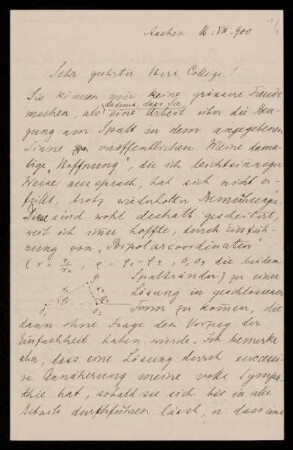 Aachen 16. VII. 900
Sehr geehrter Herr College!
Sie können mir keine grössere Freude
machen, als dadurch, dass Sie eine Arbeit über die Beu-
gung am Spalt in dem angegebenen
Sinne veröffentlichen. Meine dama-
lige „Hoffnung", die ich leichtsinniger
Weise aussprach, hat sich nicht er-
füllt, trotz wiederholter Bemühungen.
Diese sind wohl deshalb gescheitert,
weil ich immer hoffte, durch Einfüh-
rung von „Bipolarcoordinaten"
die beiden
Spaltränder) zu einer
Lösung in geschlossener
Form zu kommen, die
dann ohne Frage den Vorzug der
Einfachheit haben würde. Ich bemerke
aber, dass eine Lösung durch successi-
ve Annäherung meine volle Sympa-
thie hat, sobald sie sich bis in alle
durchführen lässt, u dass eine